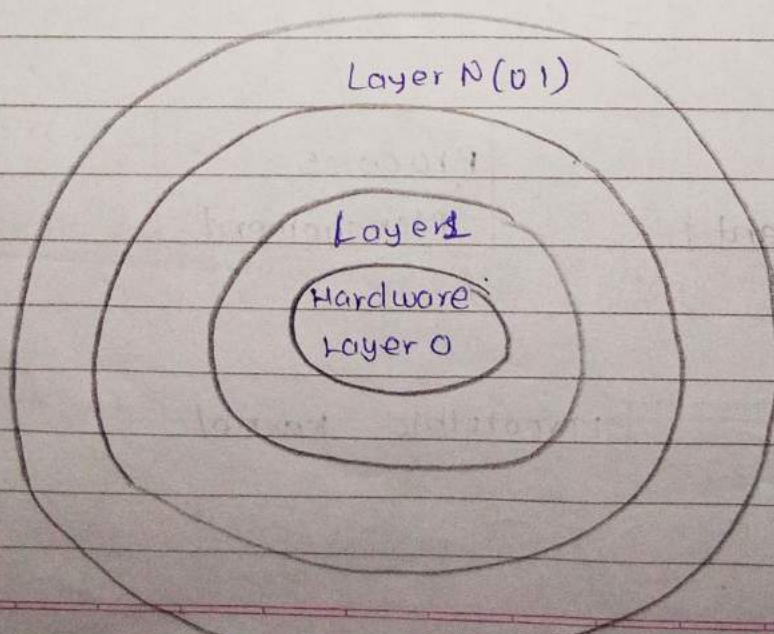 Layer N (01)
Layer 1
Hardware
Layer 0